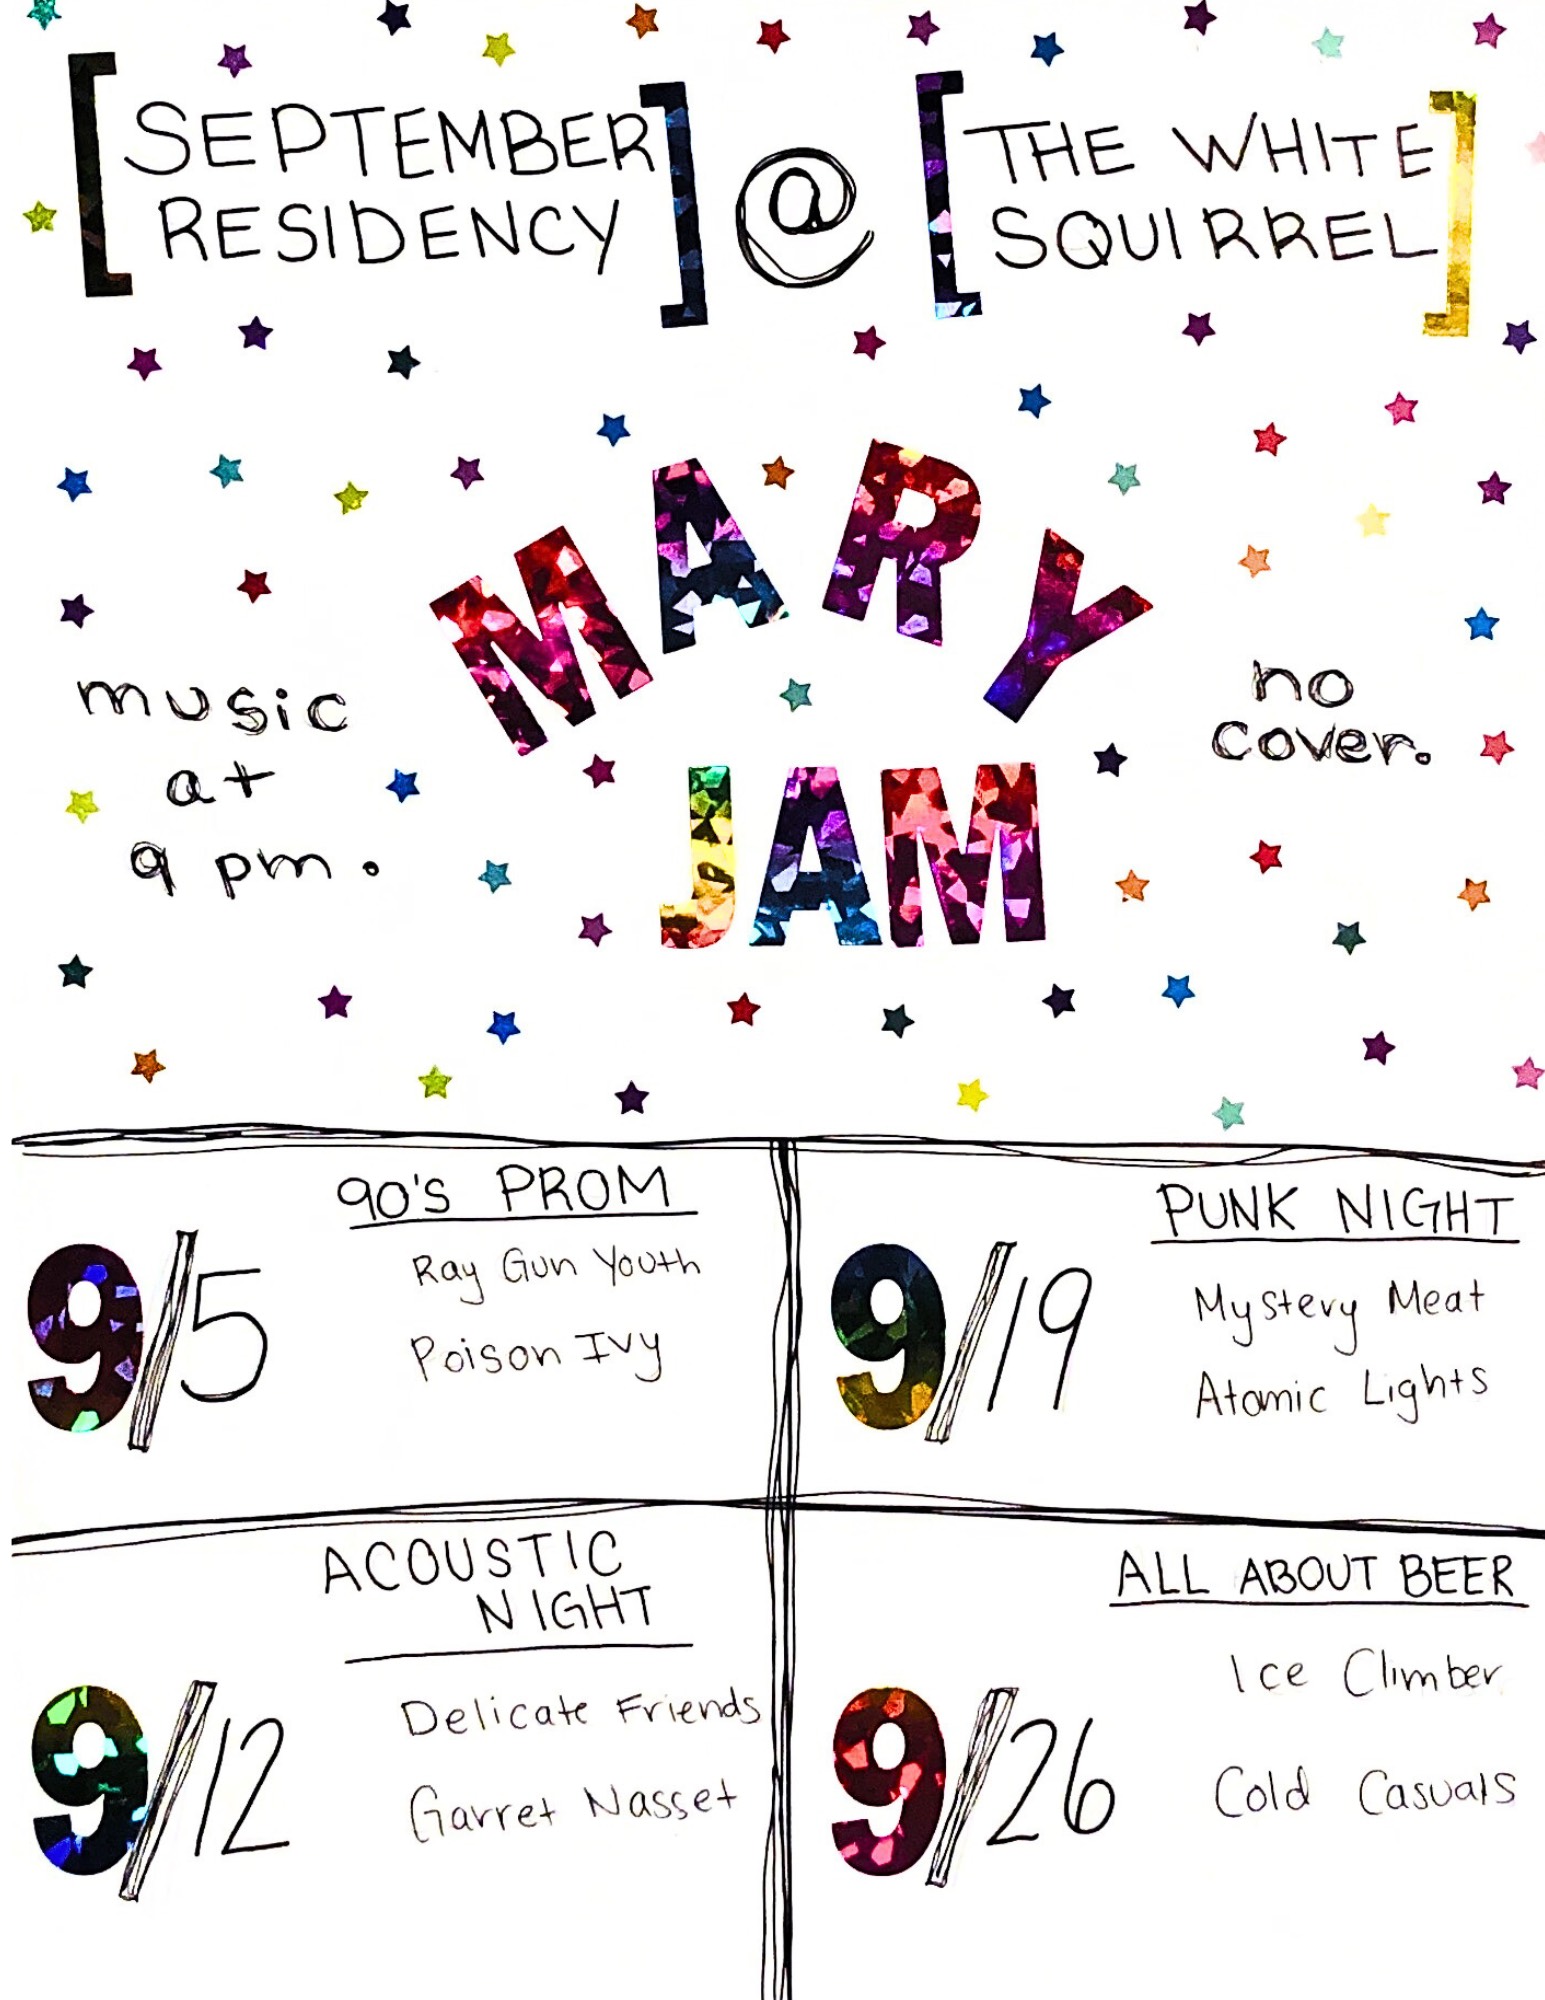 [SEPTEMBER
RESIDENCY]
@
[THE WHITE
SQUIRREL]
MARY
JAM
music
at
9 pm.
no
cover.
90'S PROM
9/5
Ray Gun Youth
Poison Ivy
PUNK NIGHT
9/19
Mystery Meat
Atomic Lights
ACOUSTIC
NIGHT
9/12
Delicate Friends
Garret Nasset
ALL ABOUT BEER
9/26
Ice Climber
Cold Casuals